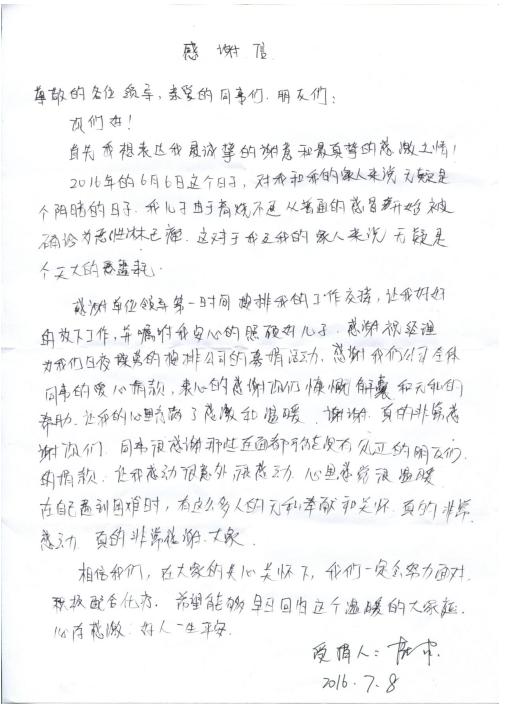 感谢信
尊敬的各位领导，亲爱的同事们、朋友们：
你们好！
首先我想表达我最诚挚的谢意和最真挚的感激之情！
2016年的6月6日这个日子，对我和我的家人来说无疑是
个阴暗的日子。我儿子由于高烧不退从普通的感冒开始被
确诊为恶性淋巴瘤。这对于我及我的家人来说无疑是
个天大的噩耗。
感谢单位领导第一时间安排我的工作交接，让我好好
的放下工作，并嘱咐我安心的照顾好儿子。感谢祝经理
为我们日夜操劳的安排公司的募捐活动，感谢我们公司全体
同事的爱心捐款，衷心的感谢你们慷慨解囊和无私的
帮助。让我的心里充满了感激和温暖。谢谢，真的非常感
谢你们。同事很感谢那些连面都可能没有见过的朋友们
的捐款，让我感动很意外很感动，心里感觉很温暖
在自己遇到困难时，有这么多人的无私奉献和关怀，真的非常
感动，真的非常感谢大家
相信我们，在大家的关心关怀下，我们一定会努力面对，
积极配合化疗。希望能够早日回归这个温暖的大家庭。
心存感激：好人一生平安
受捐人：
2016.7.8